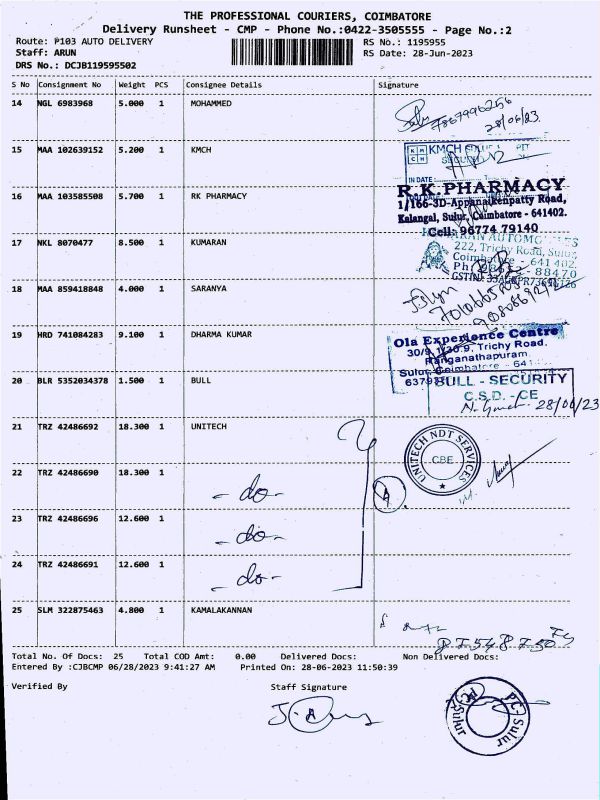 THE PROFESSIONAL COURIERS, COIMBATORE
Delivery Runsheet - CMP - Phone No.:0422-3505555 - Page No.:2
Route: P103 AUTO DELIVERY
RS No.: 1195955
Staff: ARUN
RS Date: 28-Jun-2023
DRS No.: DCJB119595502
S No Consignment No Weight PCS Consignee Details Signature
14 NGL 6983968 5.000 1 MOHAMMED
28/06/23
15 MAA 102639152 5.200 1 KMCH
KMCH
IN DATE
16 MAA 103585508 5.700 1 RK PHARMACY
R.K.PHARMACY
1/166-3D-Appanaikenpatty Road,
Kalangal, Sulur, Coimbatore - 641402.
Cell: 96774 79140
17 NKL 8070477 8.500 1 KUMARAN
222, Trichy Road, Sulur,
Coimbatore - 641 402.
18 MAA 859418848 4.000 1 SARANYA
19 HRD 741084283 9.100 1 DHARMA KUMAR
Ola Experience Centre
Trichy Road,
Ranganathapuram,
Sulur, Coimbatore - 641
20 BLR 5352034378 1.500 1 BULL
BULL - SECURITY
C.S.D. - CE
28/06/23
21 TRZ 42486692 18.300 1 UNITECH
UNITECH NDT SERVICES
CBE
22 TRZ 42486690 18.300 1
- do -
A
23 TRZ 42486696 12.600 1
- do -
24 TRZ 42486691 12.600 1
- do -
25 SLM 322875463 4.800 1 KAMALAKANNAN
Total No. Of Docs: 25 Total COD Amt: 0.00 Delivered Docs: Non Delivered Docs:
Entered By :CJBCMP 06/28/2023 9:41:27 AM Printed On: 28-06-2023 11:50:39
Verified By
Staff Signature
PC Sulur
Sulur